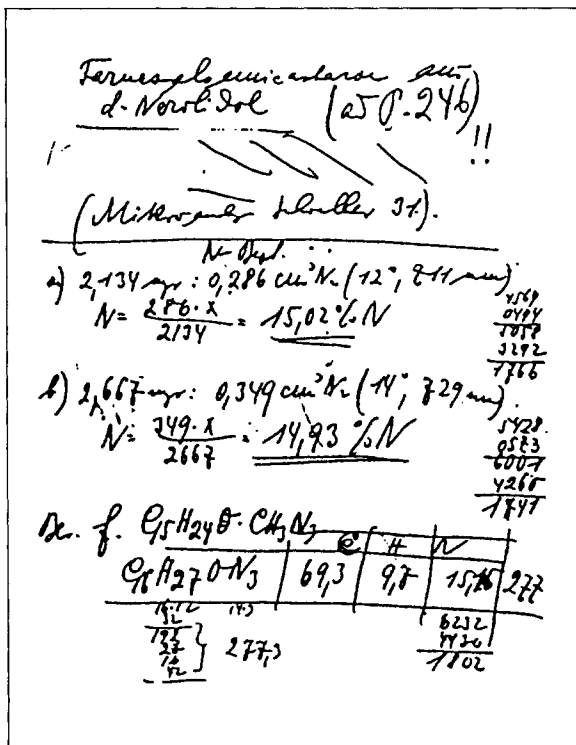 Farnesylsemicarbazon aus
d-Nerolidol (a5 P. 246)
!!
(Mikroanalys. Schoeller 31.).
N-Best.
a) 2,134 mgr: 0,286 cm³ N₂ (12°, 711 mm)
N = 286·X / 2134 = 15,02 % N
4569
0494
5058
3292
1766
b) 2,667 mgr: 0,349 cm³ N₂ (14°, 729 mm).
N = 349·X / 2667 = 14,93 % N
5428
0573
6001
4260
1741
Ber. f. C₁₅H₂₄O·CH₃N₃
C H N
C₁₆H₂₇O·N₃ 69,3 9,7 15,16 277
16·12 14·3
32
192
27
16
42
277,3
6232
4430
1802